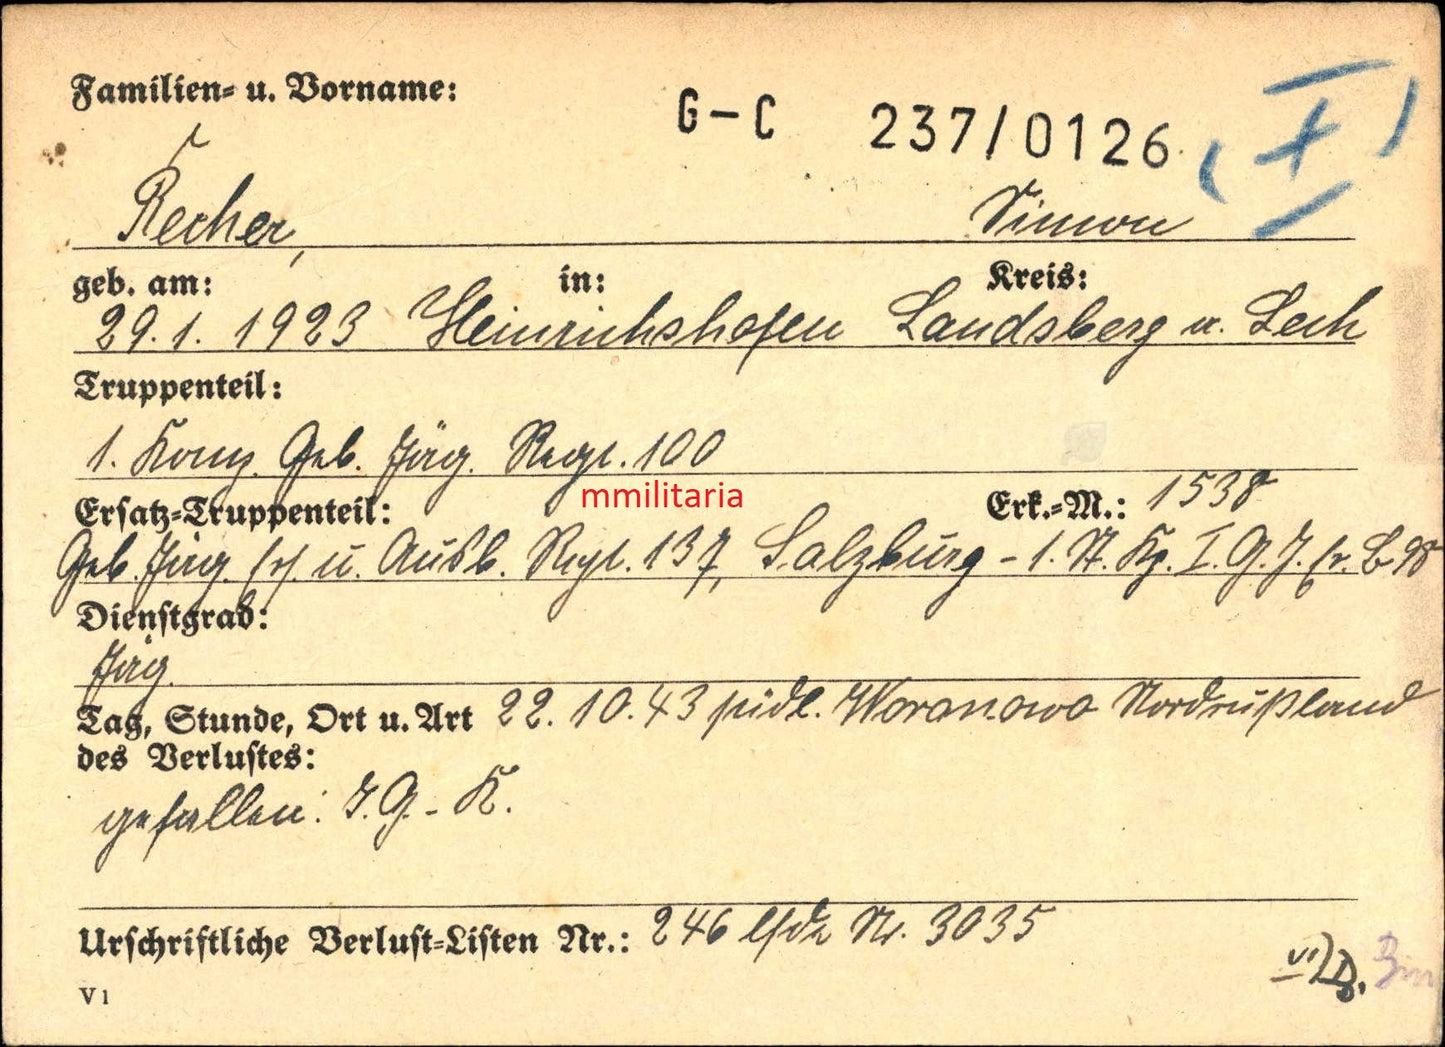 Familien- u. Vorname:
G-C 237/0126
Recher, Simon
geb. am: in: Kreis:
29.1.1923 Heinrichshofen Landsberg a. Lech
Truppenteil:
1. Komp. Geb. Jäg. Regt. 100
mmilitaria
Ersatz-Truppenteil: Erk.-M.: 1538
Geb. Jäg. Ers. u. Ausb. Regt. 137, Salzburg - 1. St. Kp. I. G. J. Er. B 98
Dienstgrad:
Jäg.
Tag, Stunde, Ort u. Art 22.10.43 südl. Woronowo Nordrußland
des Verlustes:
gefallen: I.G.-K.
Urschriftliche Verlust-Listen Nr.: 246 lfde Nr. 3035
V 1